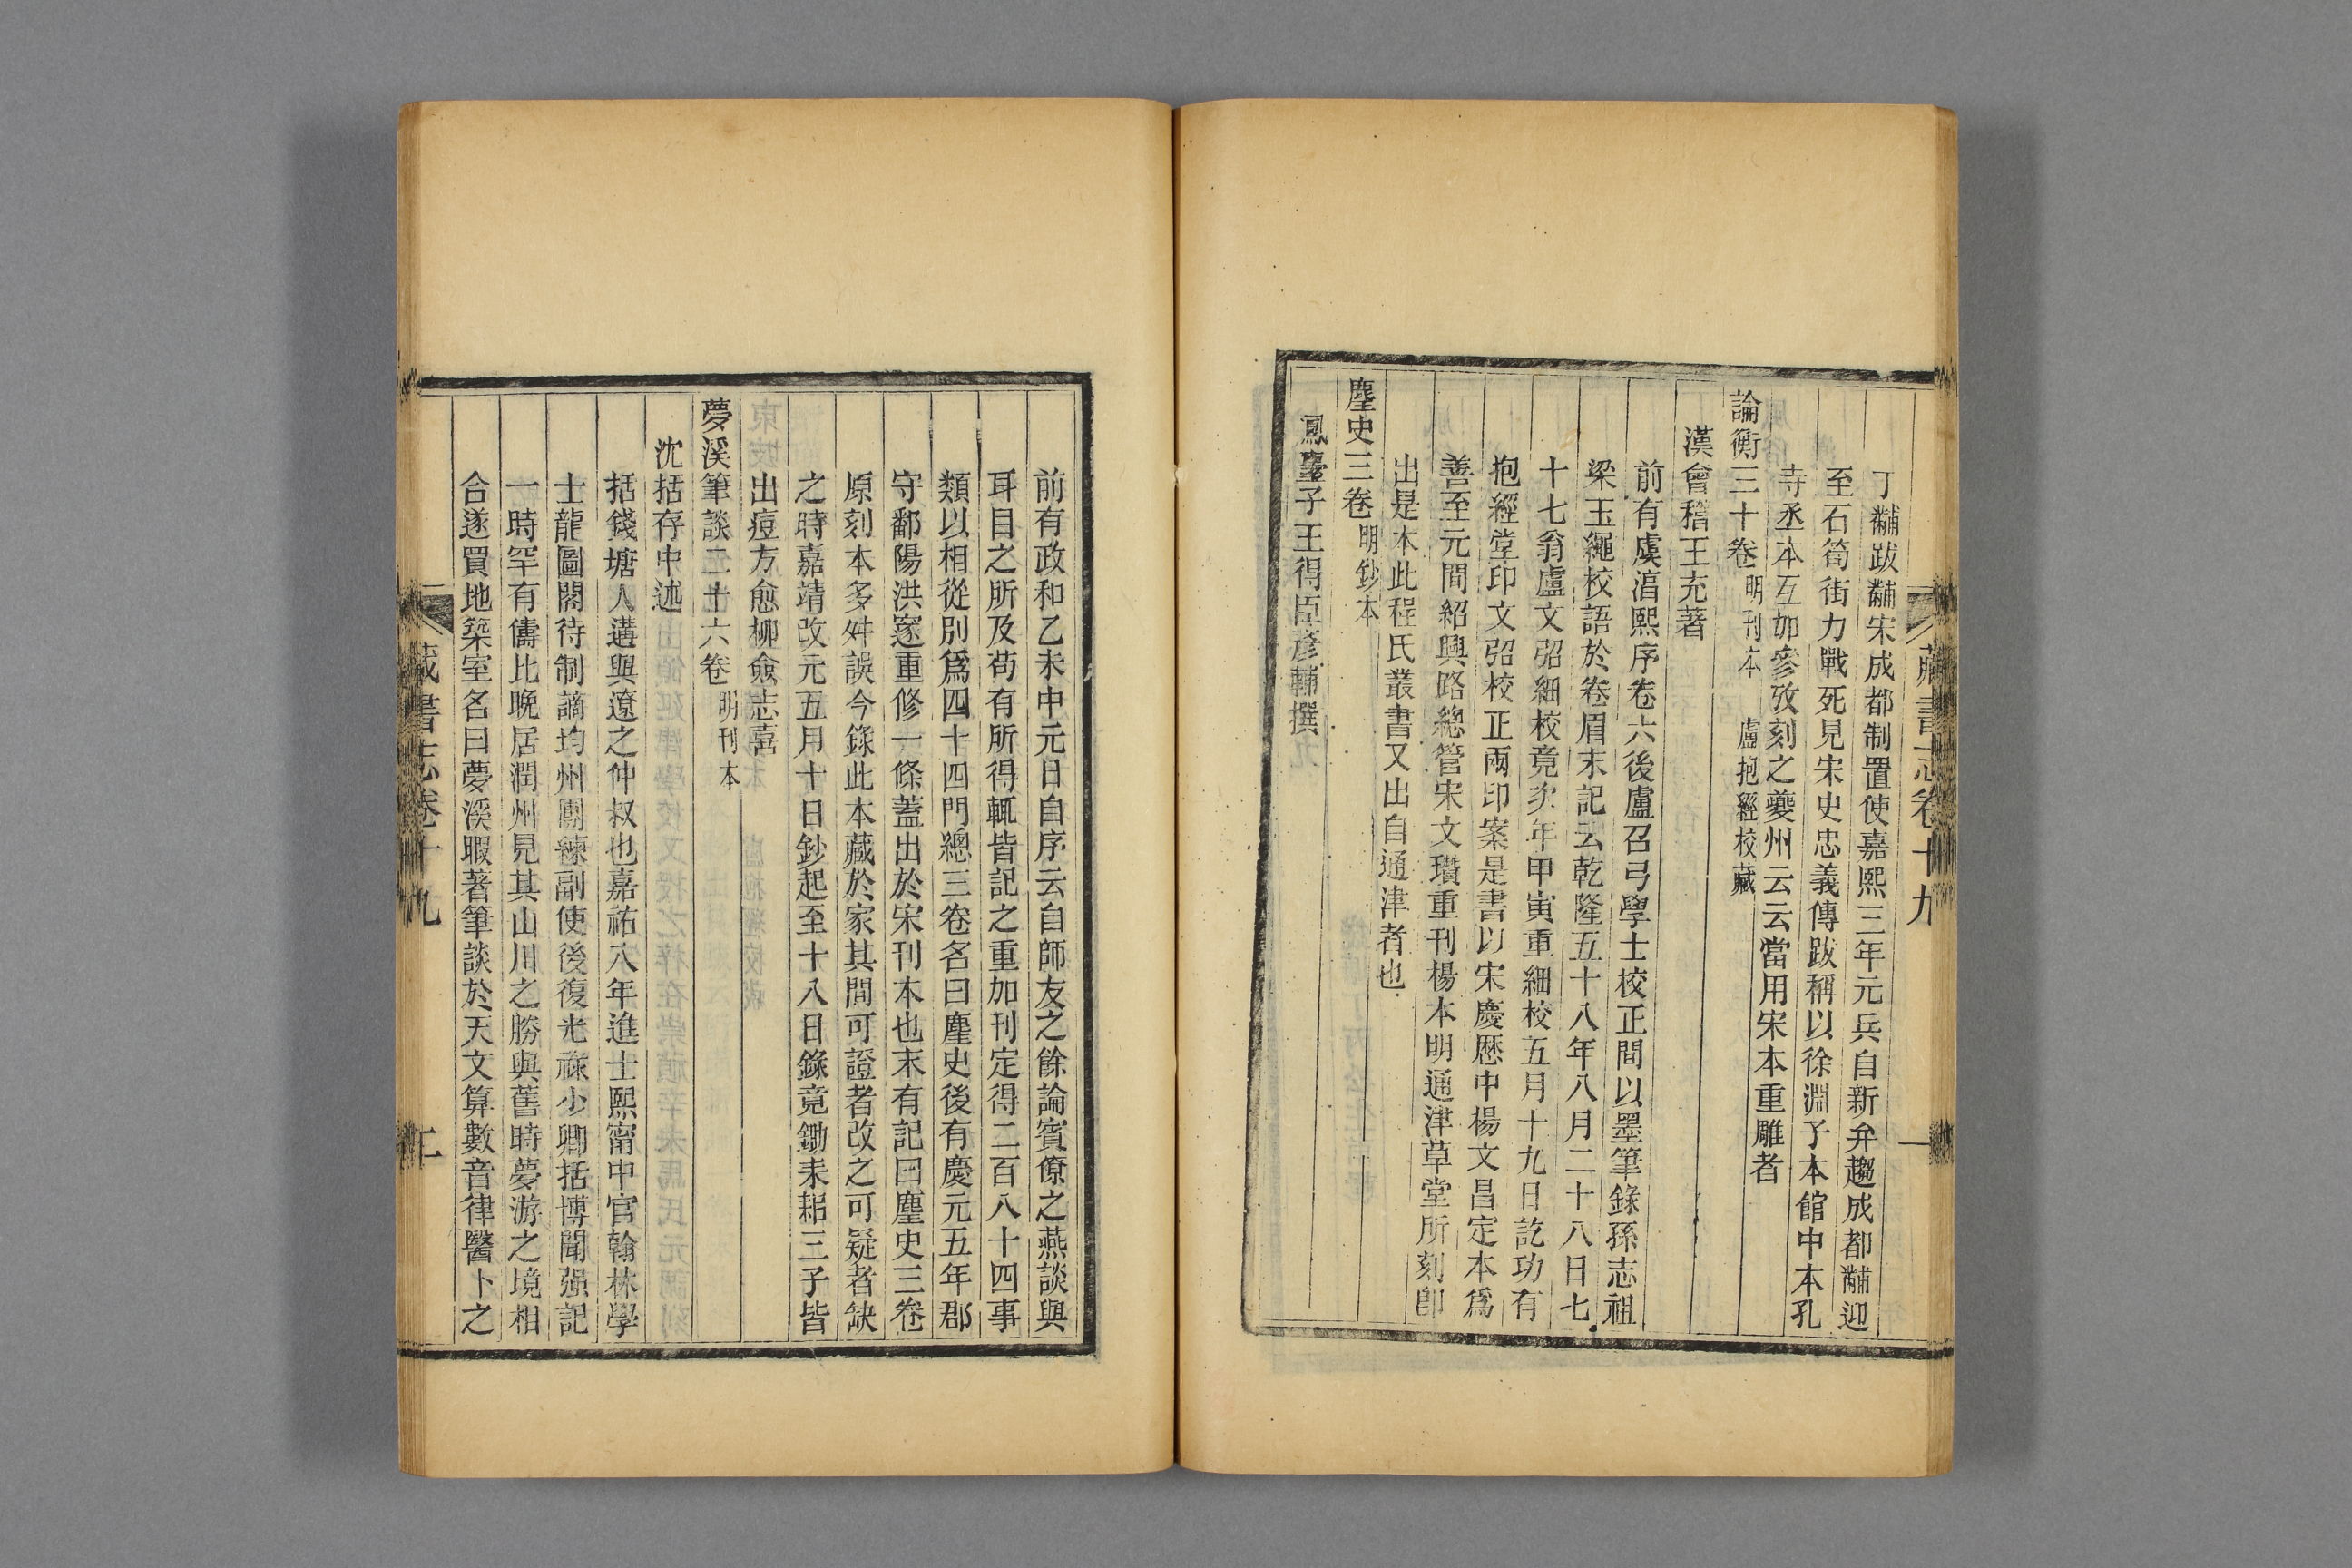 藏書志卷十九
一
丁黼跋黼宋成都制置使嘉熙三年元兵自新弁趨成都黼迎
至石筍街力戰死見宋史忠義傳跋稱以徐淵子本館中本孔
寺丞本互加參攷刻之夔州云云當用宋本重雕者
論衡三十卷 明刊本 盧抱經校藏
漢會稽王充著
前有虞淯熙序卷六後盧召弓學士校正間以墨筆錄孫志祖
梁玉繩校語於卷眉末記云乾隆五十八年八月二十八日七
十七翁盧文弨細校竟次年甲寅重細校五月十九日訖功有
抱經堂印文弨校正兩印案是書以宋慶歷中楊文昌定本爲
善至元間紹興路總管宋文瓚重刊楊本明通津草堂所刻卽
出是本此程氏叢書又出自通津者也
麈史三卷 明鈔本
鳳臺子王得臣彦輔撰
前有政和乙未中元日自序云自師友之餘論賓僚之燕談與
耳目之所及苟有所得輒皆記之重加刊定得二百八十四事
類以相從別爲四十四門總三卷名曰麈史後有慶元五年郡
守鄱陽洪邃重修一條蓋出於宋刊本也末有記曰麈史三卷
原刻本多舛誤今錄此本藏於家其間可證者改之可疑者缺
之時嘉靖改元五月十日鈔起至十八日錄竟鋤耒耜三子皆
出痘方愈柳僉志喜
夢溪筆談二十六卷 明刊本
沈括存中述
括錢塘人遘與遼之仲叔也嘉祐八年進士熙甯中官翰林學
士龍圖閣待制謫均州團練副使後復光祿少卿括博聞强記
一時罕有儔比晚居潤州見其山川之勝與舊時夢游之境相
合遂買地築室名曰夢溪暇著筆談於天文算數音律醫卜之
藏書志卷十九
二